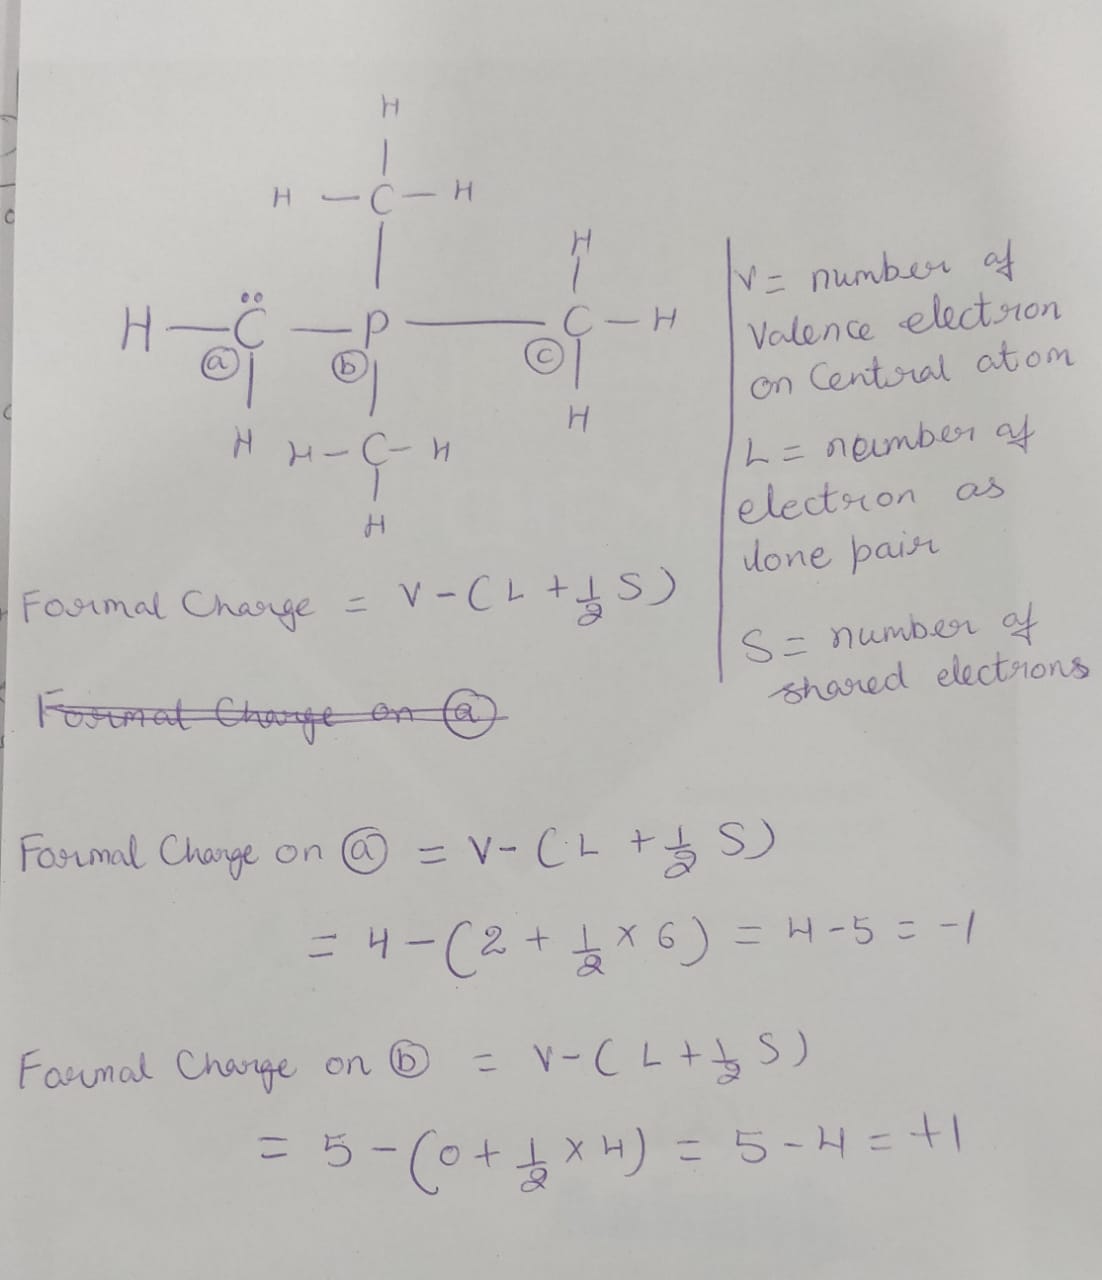 H
H — C — H
H
H — C̈ — P — C — H
ⓐ ⓑ ⓒ
H H — C — H H
H
V = number of
Valence electron
on Central atom
L = number of
electron as
lone pair
S = number of
shared electrons
Formal Charge = V - ( L + 1/2 S )
Formal Charge on ⓐ
Formal Charge on ⓐ = V - ( L + 1/2 S )
= 4 - ( 2 + 1/2 × 6 ) = 4 - 5 = -1
Formal Charge on ⓑ = V - ( L + 1/2 S )
= 5 - ( 0 + 1/2 × 4 ) = 5 - 4 = +1